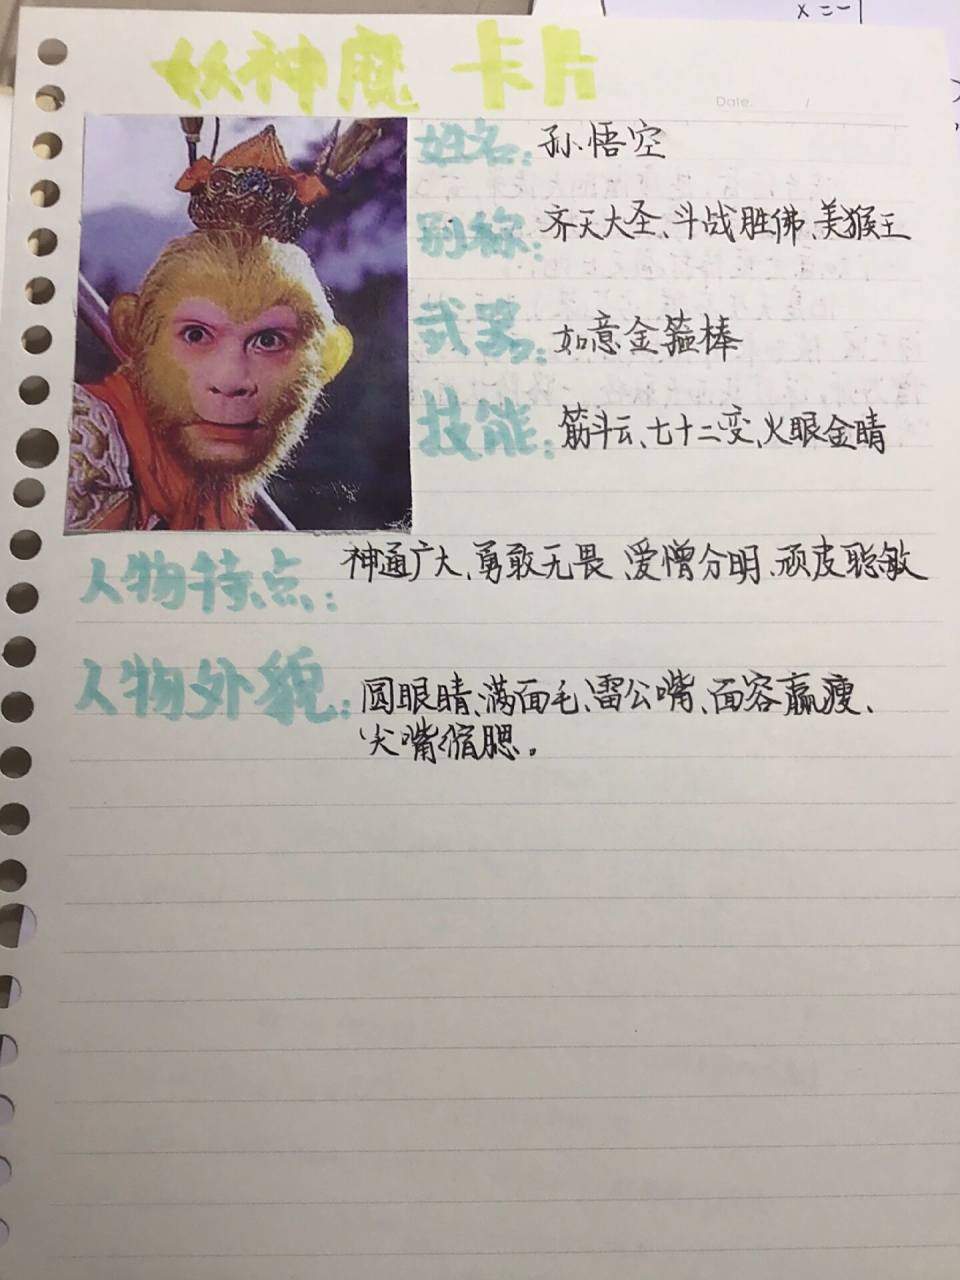 x=-1
妖神魔 卡片
Date. /
姓名: 孙悟空
别称: 齐天大圣、斗战胜佛、美猴王
武器: 如意金箍棒
技能: 筋斗云、七十二变、火眼金睛
人物特点: 神通广大、勇敢无畏、爱憎分明、顽皮聪敏
人物外貌: 圆眼睛、满面毛、雷公嘴、面容羸瘦、
尖嘴缩腮。